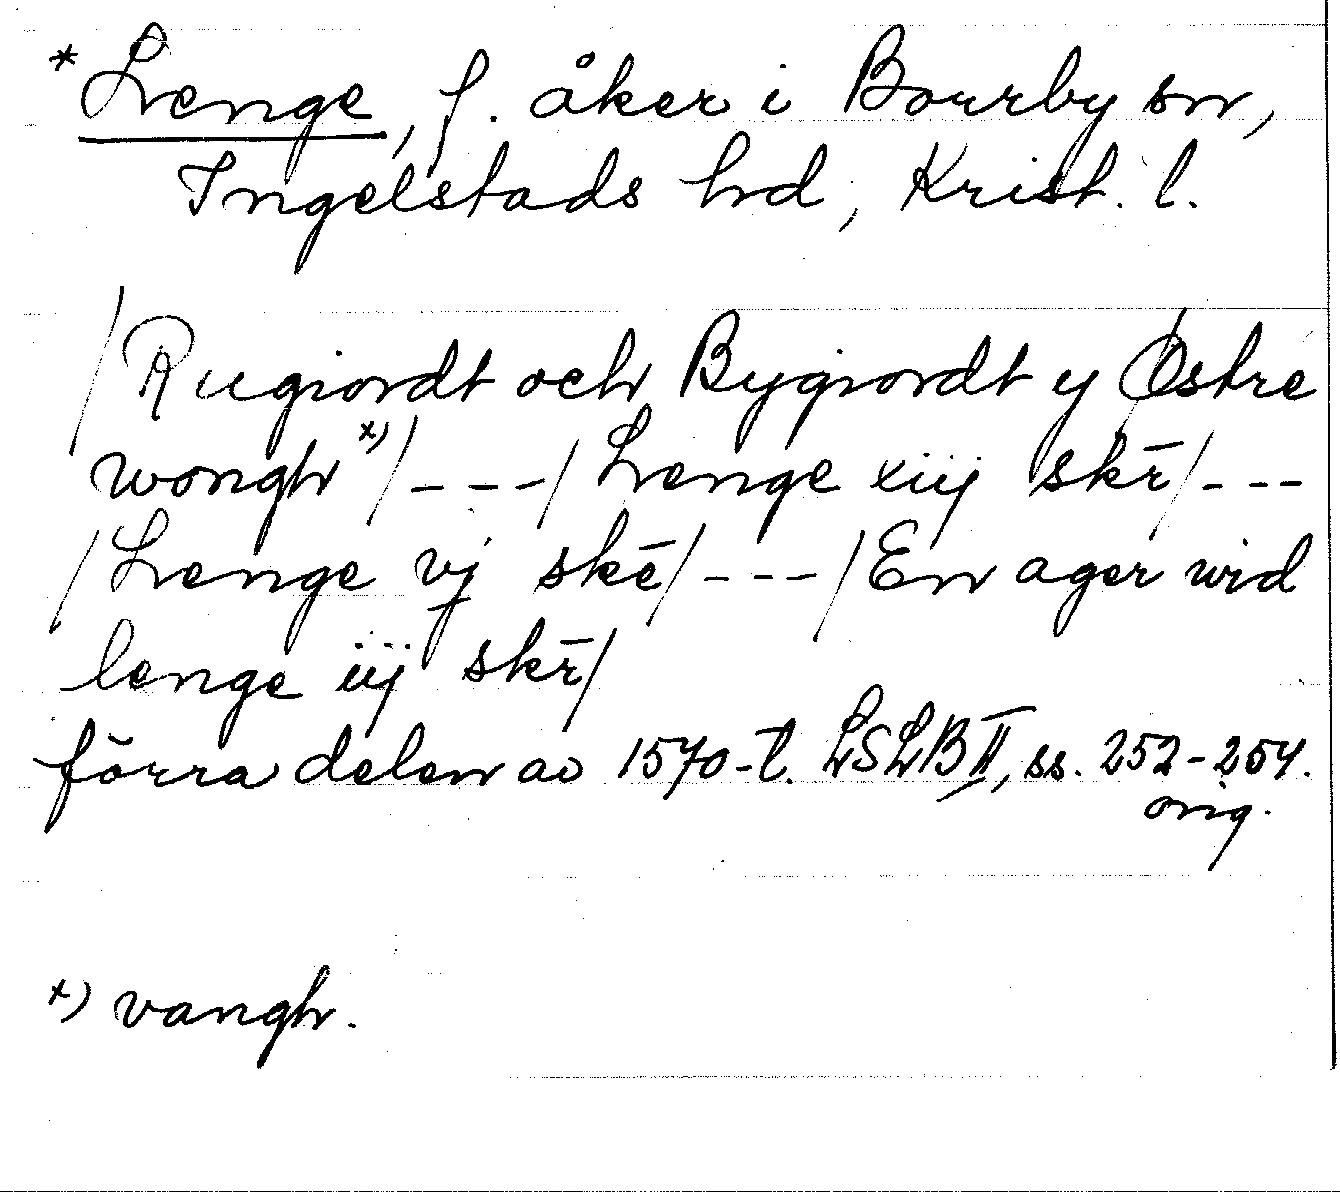 *Lenge, f. åker i Bourby sn,
Ingelstads hd, Krist. l.
/Rugiordt och Bygiordt y Østre
wongh x)/ --- / Lenge xiij skr̄/ ---
/Lenge vj skr̄/ --- /En ager wid
lenge iij skr̄/
förra delen av 1570-t. LSLB II, ss. 252-254.
orig.
x) vangh.